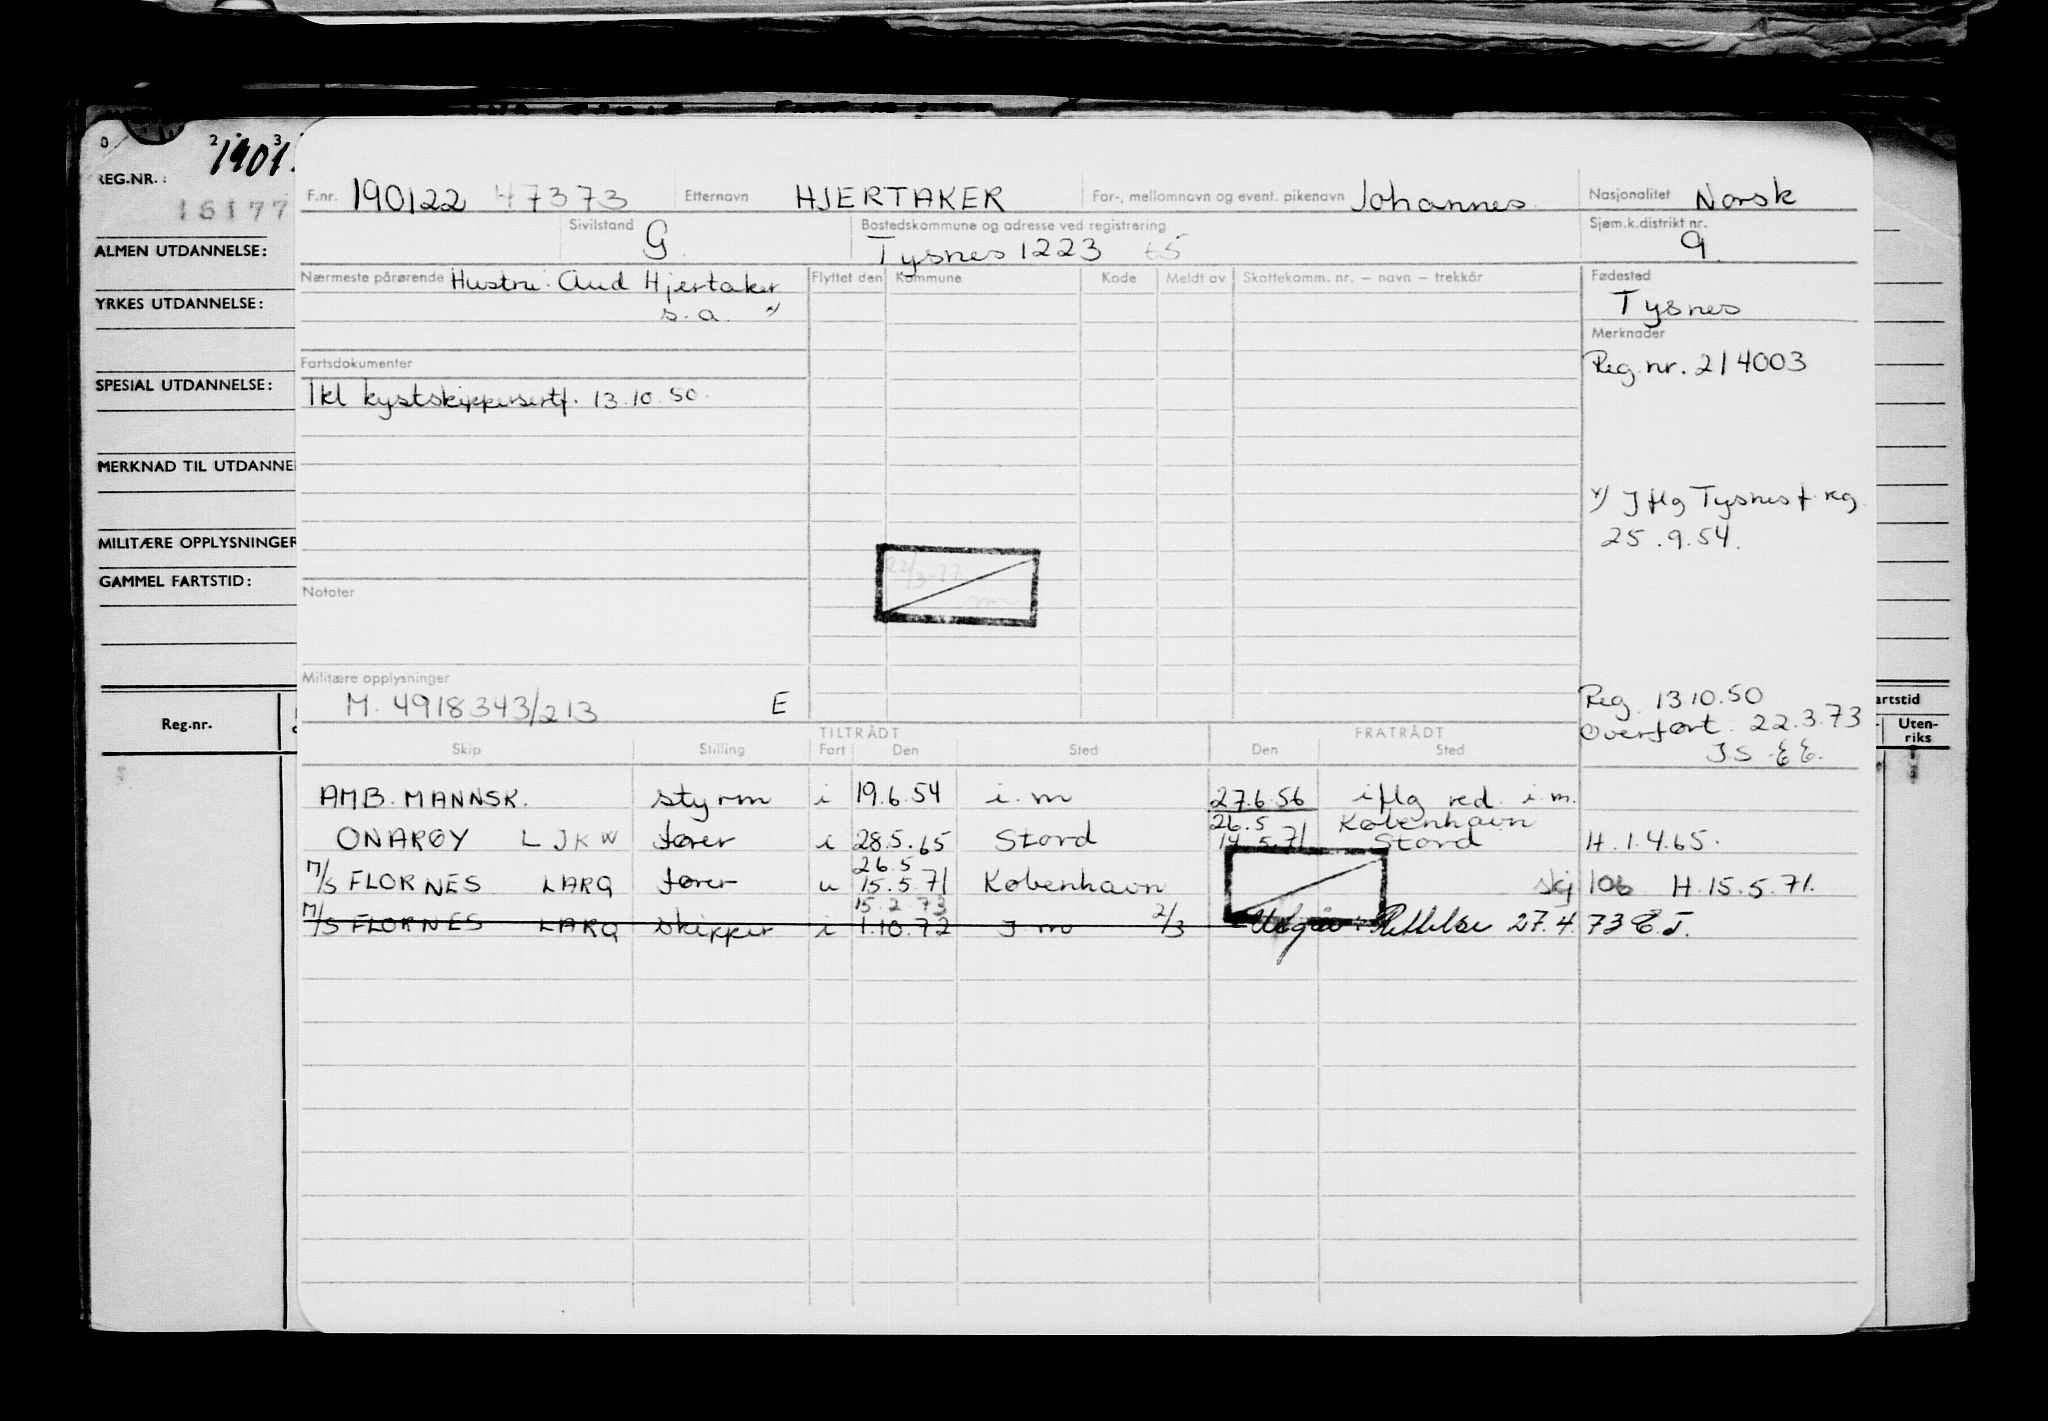 REG.NR.: 1901.
16177
ALMEN UTDANNELSE:
YRKES UTDANNELSE:
SPESIAL UTDANNELSE:
MERKNAD TIL UTDANNE
MILITÆRE OPPLYSNINGER
GAMMEL FARTSTID:
Reg.nr.
F.nr. 190122 47373 Etternavn HJERTAKER For-, mellomnavn og event. pikenavn Johannes Nasjonalitet Norsk
Sivilstand G. Bostedskommune og adresse ved registrering Tysnes 1223 65 Sjøm.k.distrikt nr. 9.
Nærmeste pårørende Hustru: Aud Hjertaker Flyttet den Kommune Kode Meldt av Skattekomm. nr. – navn – trekkår Fødested
s. a. x) Tysnes
Merknader
Fartsdokumenter Reg.nr. 214003
1kl kystskippersertf. 13.10.50.
x) Iflg Tysnes f.reg
25.9.54.
22/3-77
Notater
Militære opplysninger
M. 4918343/213 E
Reg. 13.10.50
Overført. 22.3.73
artstid
Uten-
riks
TILTRÅDT FRATRÅDT
Skip Stilling Fart Den Sted Den Sted
AMB. MANNSK. styrm i 19.6.54 i.m 27.6.56 iflg red. i.m.
26.5 København
ONARØY LJKW fører i 28.5.65 Stord 14.5.71 Stord H.1.4.65.
26.5
M/S FLORNES LARQ fører u 15.5.71 København skj 106 H.15.5.71.
15.2.73
M/S FLORNES LARQ skipper i 1.10.72 I m 2/3 Utgår Rettelse 27.4.73 E.J.